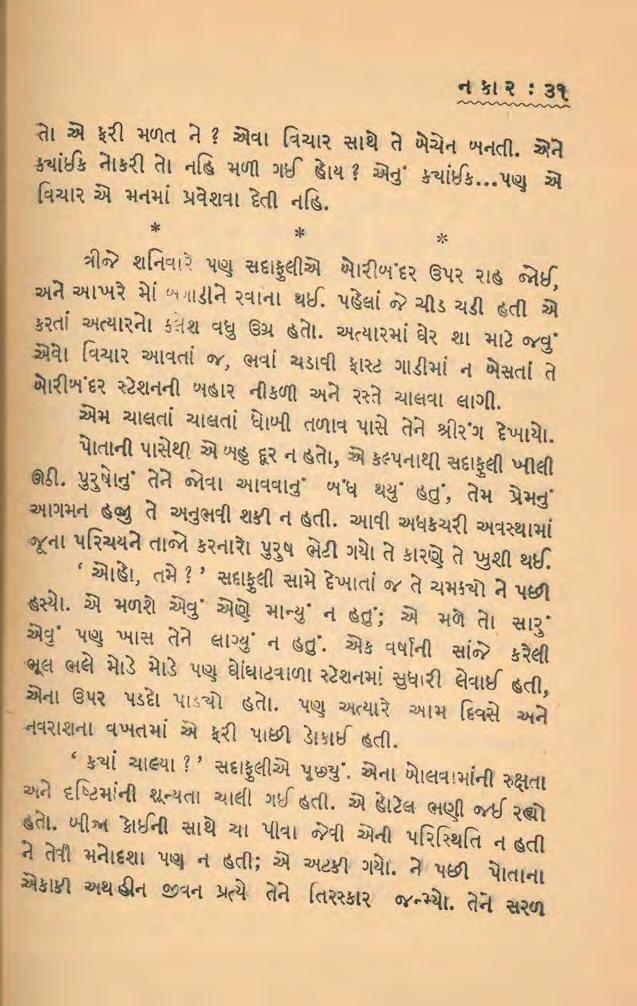 નકાર : ૩૧
તો એ ફરી મળત ને ? એવા વિચાર સાથે તે બેચેન બનતી. એને
ક્યાંઈક નોકરી તો નહિ મળી ગઈ હોય ? એનું ક્યાંઈક...પણ એ
વિચાર એ મનમાં પ્રવેશવા દેતી નહિ.
* * *
ત્રીજે શનિવારે પણ સદાફુલીએ બોરીબંદર ઉપર રાહ જોઈ,
અને આખરે મોં બગાડીને રવાના થઈ. પહેલાં જે ચીડ ચડી હતી એ
કરતાં અત્યારનો કલેશ વધુ ઉગ્ર હતો. અત્યારમાં ઘેર શા માટે જવું
એવો વિચાર આવતાં જ, ભવાં ચડાવી ફાસ્ટ ગાડીમાં ન બેસતાં તે
બોરીબંદર સ્ટેશનની બહાર નીકળી અને રસ્તે ચાલવા લાગી.
એમ ચાલતાં ચાલતાં ધોબી તળાવ પાસે તેને શ્રીરંગ દેખાયો.
પોતાની પાસેથી એ બહુ દૂર ન હતો, એ કલ્પનાથી સદાફુલી ખીલી
ઊઠી. પુરુષોનું તેને જોવા આવવાનું બંધ થયું હતું, તેમ પ્રેમનું
આગમન હજી તે અનુભવી શકી ન હતી. આવી અધકચરી અવસ્થામાં
જૂના પરિચયને તાજો કરનારો પુરુષ ભેટી ગયો તે કારણે તે ખુશી થઈ.
‘ ઓહો, તમે ? ’ સદાફુલી સામે દેખાતાં જ તે ચમક્યો ને પછી
હસ્યો. એ મળશે એવું એણે માન્યું ન હતું; એ મળે તો સારું
એવું પણ ખાસ તેને લાગ્યું ન હતું. એક વર્ષાની સાંજે કરેલી
ભૂલ ભલે મોડે મોડે પણ ઘોંઘાટવાળા સ્ટેશનમાં સુધારી લેવાઈ હતી,
એના ઉપર પડદો પાડ્યો હતો. પણ અત્યારે આમ દિવસે અને
નવરાશના વખતમાં એ ફરી પાછી ડોકાઈ હતી.
‘ ક્યાં ચાલ્યા ? ’ સદાફુલીએ પૂછ્યું. એના બોલવામાંની રુક્ષતા
અને દષ્ટિમાંની શૂન્યતા ચાલી ગઈ હતી. એ હોટેલ ભણી જઈ રહ્યો
હતો. બીજા કોઈની સાથે ચા પીવા જેવી એની પરિસ્થિતિ ન હતી
ને તેવી મનોદશા પણ ન હતી; એ અટકી ગયો. ને પછી પોતાના
એકાકી અર્થહીન જીવન પ્રત્યે તેને તિરસ્કાર જન્મ્યો. તેને સરળ